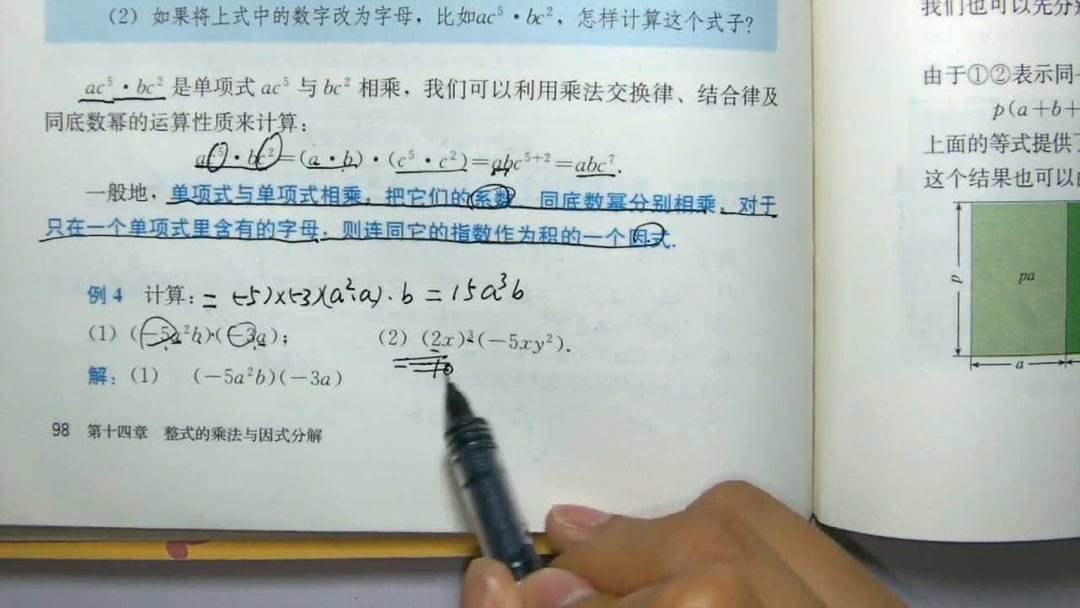 （2）如果将上式中的数字改为字母，比如ac⁵·bc²，怎样计算这个式子？
ac⁵·bc²是单项式ac⁵与bc²相乘，我们可以利用乘法交换律、结合律及
同底数幂的运算性质来计算：
ac⁵·bc²=(a·b)·(c⁵·c²)=abc⁵⁺²=abc⁷.
一般地，单项式与单项式相乘，把它们的系数、同底数幂分别相乘，对于
只在一个单项式里含有的字母，则连同它的指数作为积的一个因式.
例4 计算：=(-5)×(-3)(a²·a)·b=15a³b
（1）(-5a²b)(-3a)；（2）(2x)³(-5xy²).
解：（1） (-5a²b)(-3a)
98 第十四章 整式的乘法与因式分解
我们也可以先分别
由于①②表示同一
p(a+b+
上面的等式提供了
这个结果也可以
p
pa
a